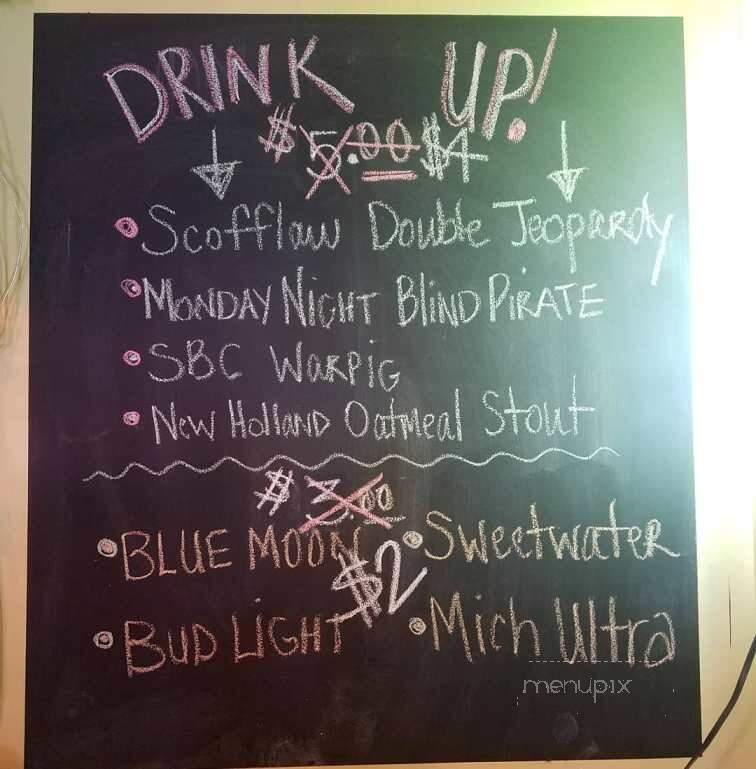 DRINK UP!
$5.00 $4
• Scofflaw Double Jeopardy
• MONDAY NIGHT BLIND PIRATE
• SBC WARPIG
• NEW HOLLAND Oatmeal Stout
$3.00
• BLUE MOON • Sweetwater
$2
• BUD LIGHT • Mich Ultra
menupix